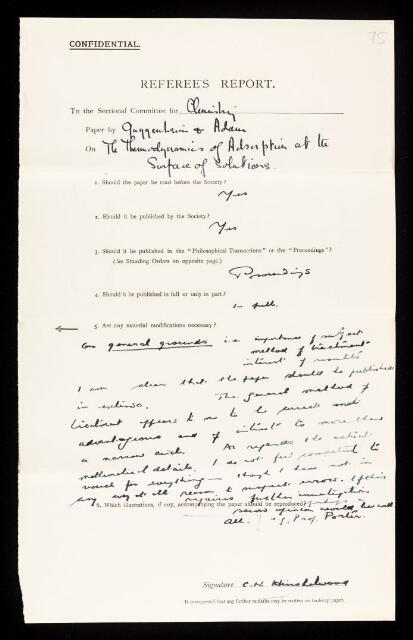 75
CONFIDENTIAL.
REFEREE'S REPORT.
To the Sectional Committee for Chemistry
Paper by Guggenheim & Adam
On The Thermodynamics of Adsorption at the
Surface of Solutions.
1. Should the paper be read before the Society?
Yes
2. Should it be published by the Society?
Yes
3. Should it be published in the "Philosophical Transactions" or the "Proceedings"?
(See Standing Orders on opposite page.)
Proceedings
4. Should it be published in full or only in part?
In full.
5. Are any material modifications necessary?
On general grounds i.e. importance of subject
method of treatment
interest of results
I am clear that the paper should be published
in extenso. The general method of
treatment appears to me to be correct and
advantageous and of interest to more than
a narrow circle. As regards the actual
mathematical details, I do not feel competent to
vouch for everything - though I have not in
any way at all reason to suspect errors. If this
requires further investigation
6. Which illustrations, if any, accompanying the paper should be reproduced?
perhaps a
opinion would be
all. Prof. Porter.
Signature C. N. Hinshelwood
It is requested that any further remarks may be written on the next page.